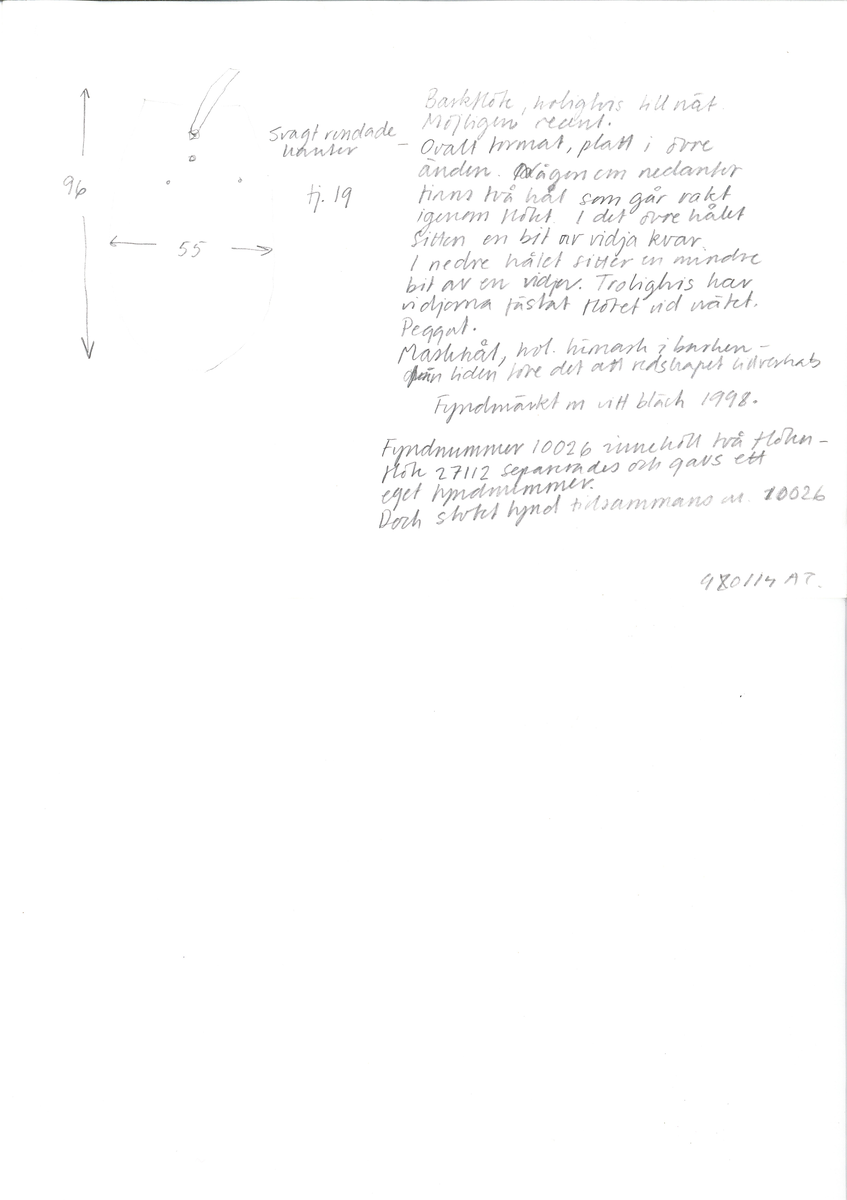 Svagt rundade
kanter
96
tj. 19
55
Barkflöte, troligtvis till nät.
Möjligen recent.
Ovalt format, platt i övre
änden. Någon cm nedanför
finns två hål som går rakt
igenom flötet. I det övre hålet
sitter en bit av vidja kvar.
I nedre hålet sitter en mindre
bit av en vidja. Troligtvis har
vidjorna fästat flötet vid nätet.
Peggat.
Maskhål, trol. i barken -
från tiden före det att redskapet tillverkats
Fyndmärket m vitt bläck 1998.
Fyndnummer 10026 innehöll två flöten -
flöte 27112 separerades och gavs ett
eget fyndnummer.
Dock flötet fynd tillsammans m. 10026
980114 AT.